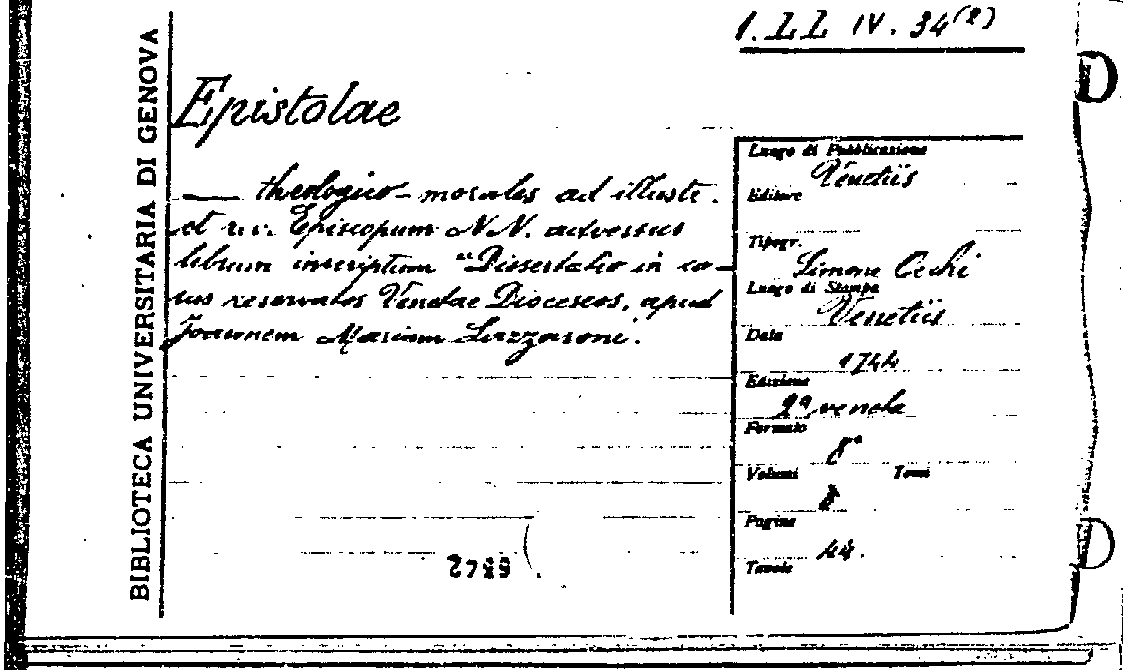 1. LL IV. 34(2)
BIBLIOTECA UNIVERSITARIA DI GENOVA
Epistolae
— theologico-morales ad illuste.
et rev. Episcopum N.N. adversus
librum inscriptum "Dissertatio in ca-
sus reservatos Venetae Dioceseos, apud
Joannem Mariam Lazzaroni.
Luogo di Pubblicazione
Venetiis
Editore
Tipogr.
Simone Occhi
Luogo di Stampa
Venetiis
Data
1744
Edizione
2ª veneta
Formato
8°
Volumi Tomi
Pagine
44.
Tavole